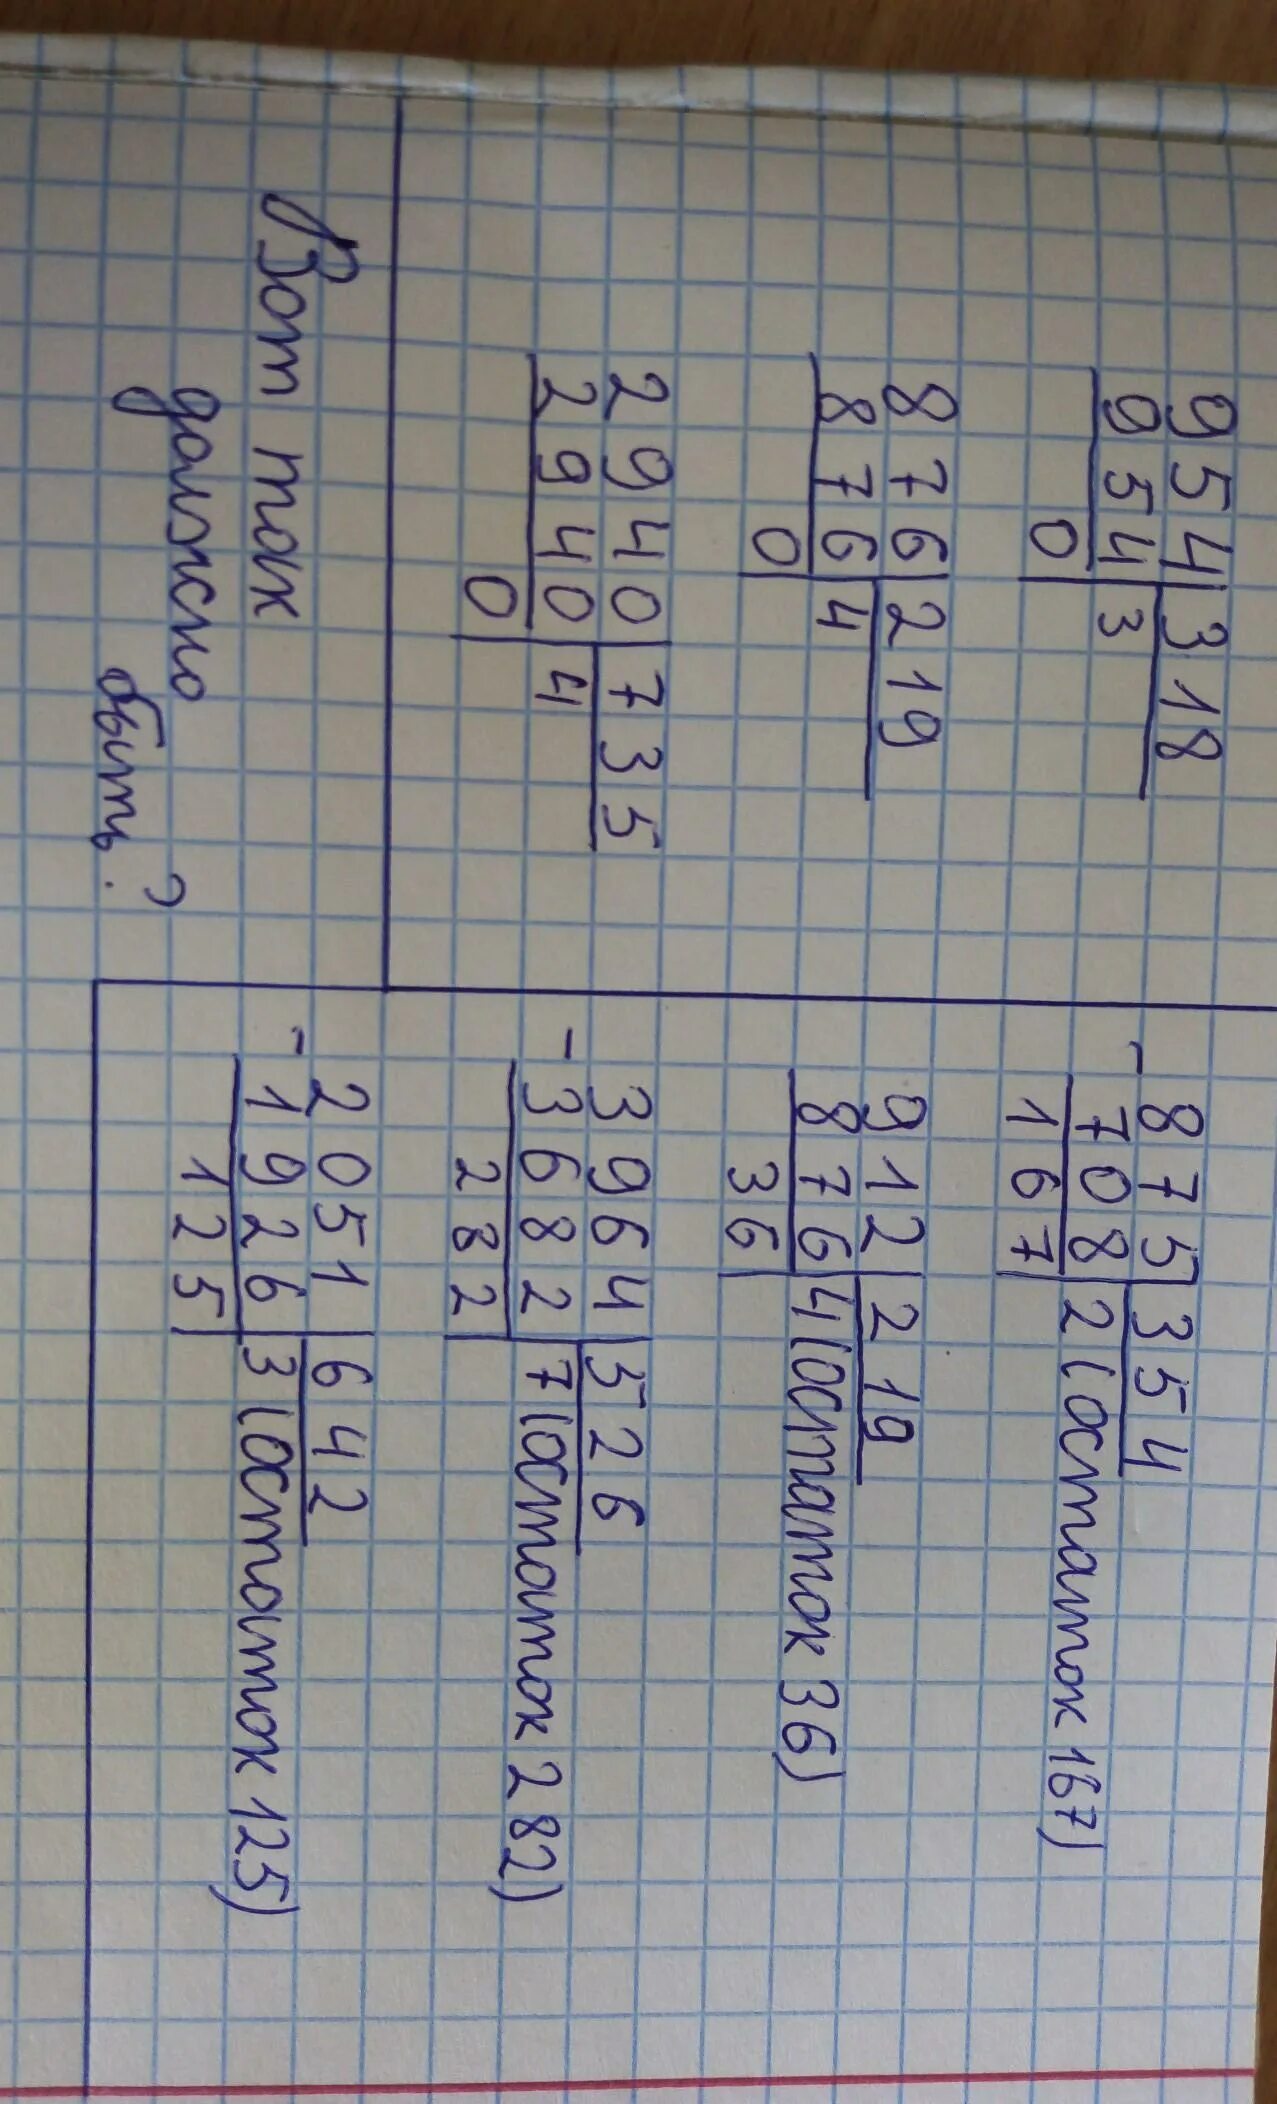 954|318
954|3
0
876|219
876|4
0
2940|735
2940|4
0
Вот так
должно
быть?
-875|354
708|2(остаток 167)
167
912|219
876|4(остаток 36)
36
-3964|526
3682|7(остаток 282)
282
-2051|642
1926|3(остаток 125)
125